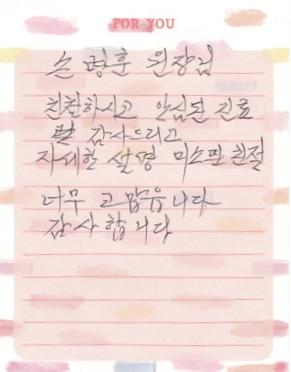 FOR YOU
손 병훈 원장님
친절하시고 안심된 진료
감사드리고
자세한 설명 미소띤 친절
너무 고맙습니다
감사합니다